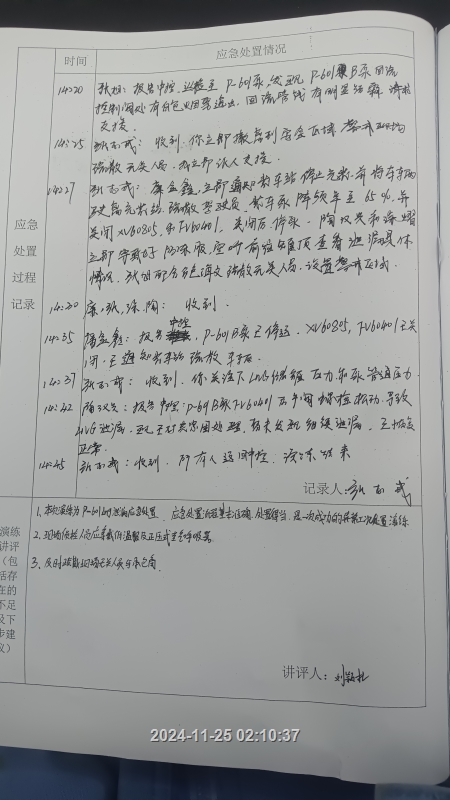 时间 应急处置情况
14:20 张旭:报告中控,巡检至P-601泵,发现P-601B泵回流
控制阀处有白色烟雾逸出,回流管线有明显结霜,请求
支援。
14:25 张志武:收到,你立即撤离到安全区域,警戒现场
疏散无关人员,我立即派人支援。
14:27 张志武:立即通知装车站停止充装,并将车辆
驶离充装站,疏散驾驶员,装车泵降频率至65%,并
关闭XV60805,和FV60401,关闭后停泵。
立即穿戴好防冻服,空呼前往罐顶查看泄漏具体
情况,张旭配合疏散无关人员,设置警戒区域。
应急
处置
过程
记录
14:30 收到。
14:35 报告中控,P-601B泵已停运,XV60805,FV60401已关
闭,已通知装车站疏散车辆。
14:37 张志武:收到,你关注下LNG储罐压力和泵管道压力。
14:42 报告中控:P-601B泵FV60401后手阀螺栓松动,导致
LNG泄漏,现已对其紧固处理,暂未发现继续泄漏,已恢复
正常。
14:45 张志武:收到,所有人返回中控,演练结束
记录人:张志武
演练
讲评
(包
括存
在的
不足
及下
步建
议)
1、本次演练为P-601B泵泄漏应急处置,应急处置流程基本正确,处置得当,是一次成功的演练。
2、现场应急人员应穿戴低温服及正压式空气呼吸器。
3、及时疏散现场无关人员
讲评人:
2024-11-25 02:10:37